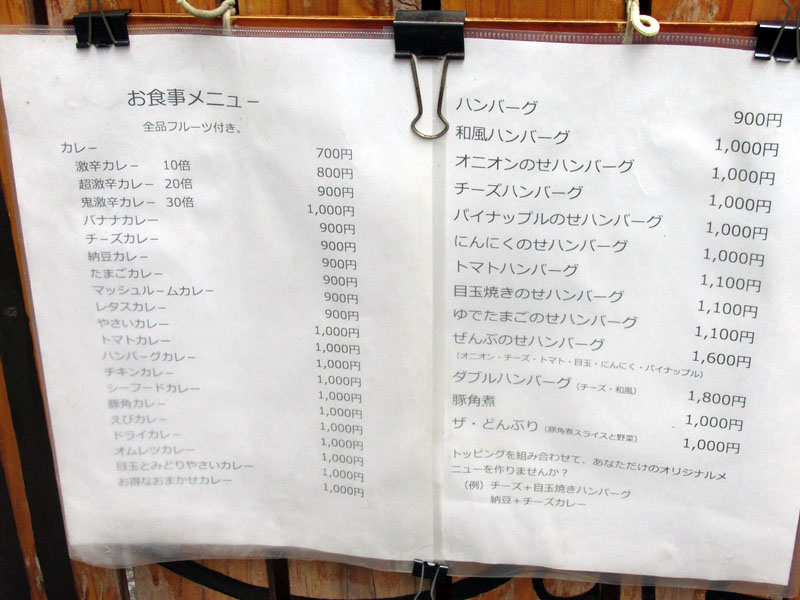 お食事メニュー
全品フルーツ付き。
カレー 700円
激辛カレー 10倍 800円
超激辛カレー 20倍 900円
鬼激辛カレー 30倍 1,000円
バナナカレー 900円
チーズカレー 900円
納豆カレー 900円
たまごカレー 900円
マッシュルームカレー 900円
レタスカレー 900円
やさいカレー 1,000円
トマトカレー 1,000円
ハンバーグカレー 1,000円
チキンカレー 1,000円
シーフードカレー 1,000円
豚角カレー 1,000円
えびカレー 1,000円
ドライカレー 1,000円
オムレツカレー 1,000円
目玉とみどりやさいカレー 1,000円
お得なおまかせカレー 1,000円
ハンバーグ 900円
和風ハンバーグ 1,000円
オニオンのせハンバーグ 1,000円
チーズハンバーグ 1,000円
パイナップルのせハンバーグ 1,000円
にんにくのせハンバーグ 1,000円
トマトハンバーグ 1,100円
目玉焼きのせハンバーグ 1,100円
ゆでたまごのせハンバーグ 1,100円
ぜんぶのせハンバーグ 1,600円
(オニオン・チーズ・トマト・目玉・にんにく・パイナップル)
ダブルハンバーグ(チーズ・和風) 1,800円
豚角煮 1,000円
ザ・どんぶり(豚角煮スライスと野菜) 1,000円
トッピングを組み合わせて、あなただけのオリジナルメ
ニューを作りませんか?
(例)チーズ+目玉焼きハンバーグ
納豆+チーズカレー